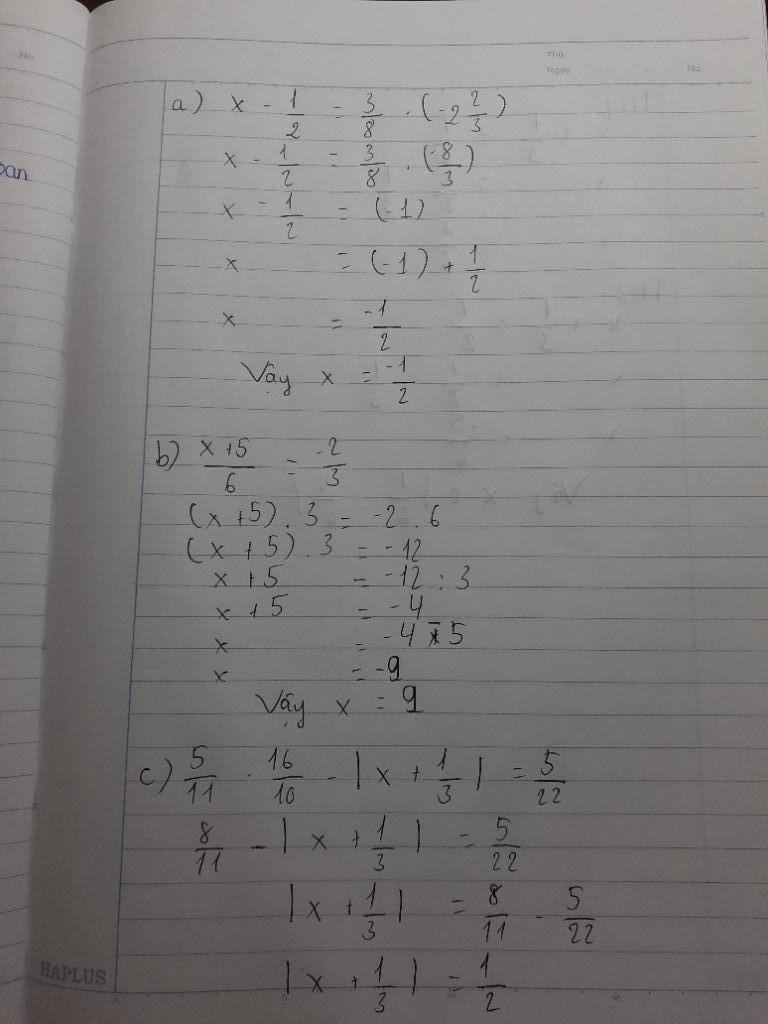 No.
Thứ
Ngày
No.
a) x - 1/2 = 3/8 . (-2 2/3)
x - 1/2 = 3/8 . (-8/3)
x - 1/2 = (-1)
x = (-1) + 1/2
x = -1/2
Vậy x = -1/2
b) (x+5)/6 = -2/3
(x+5) . 3 = -2 . 6
(x+5) . 3 = -12
x+5 = -12 : 3
x+5 = -4
x = -4 - 5
x = -9
Vậy x = 9
c) 5/11 . 16/10 - |x + 1/3| = 5/22
8/11 - |x + 1/3| = 5/22
|x + 1/3| = 8/11 - 5/22
|x + 1/3| = 1/2
HAPLUS